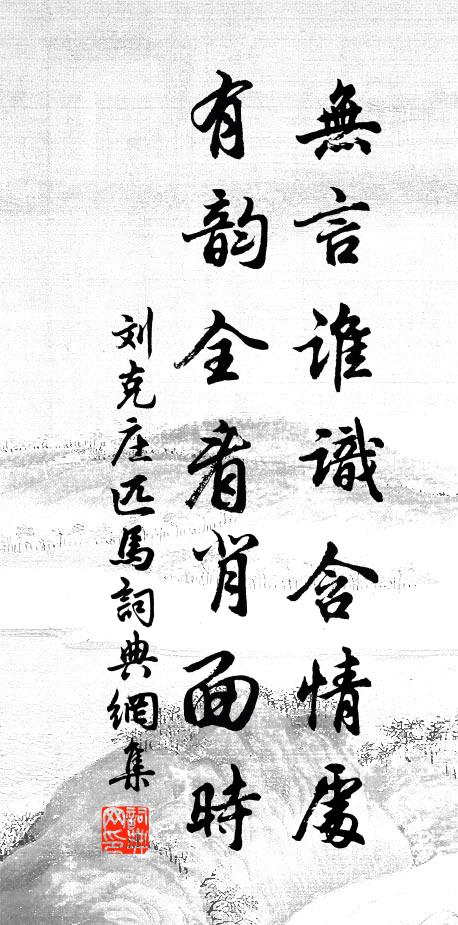 無言誰識含情處
有韵全看背面時
刘克庄匹馬詞典網集